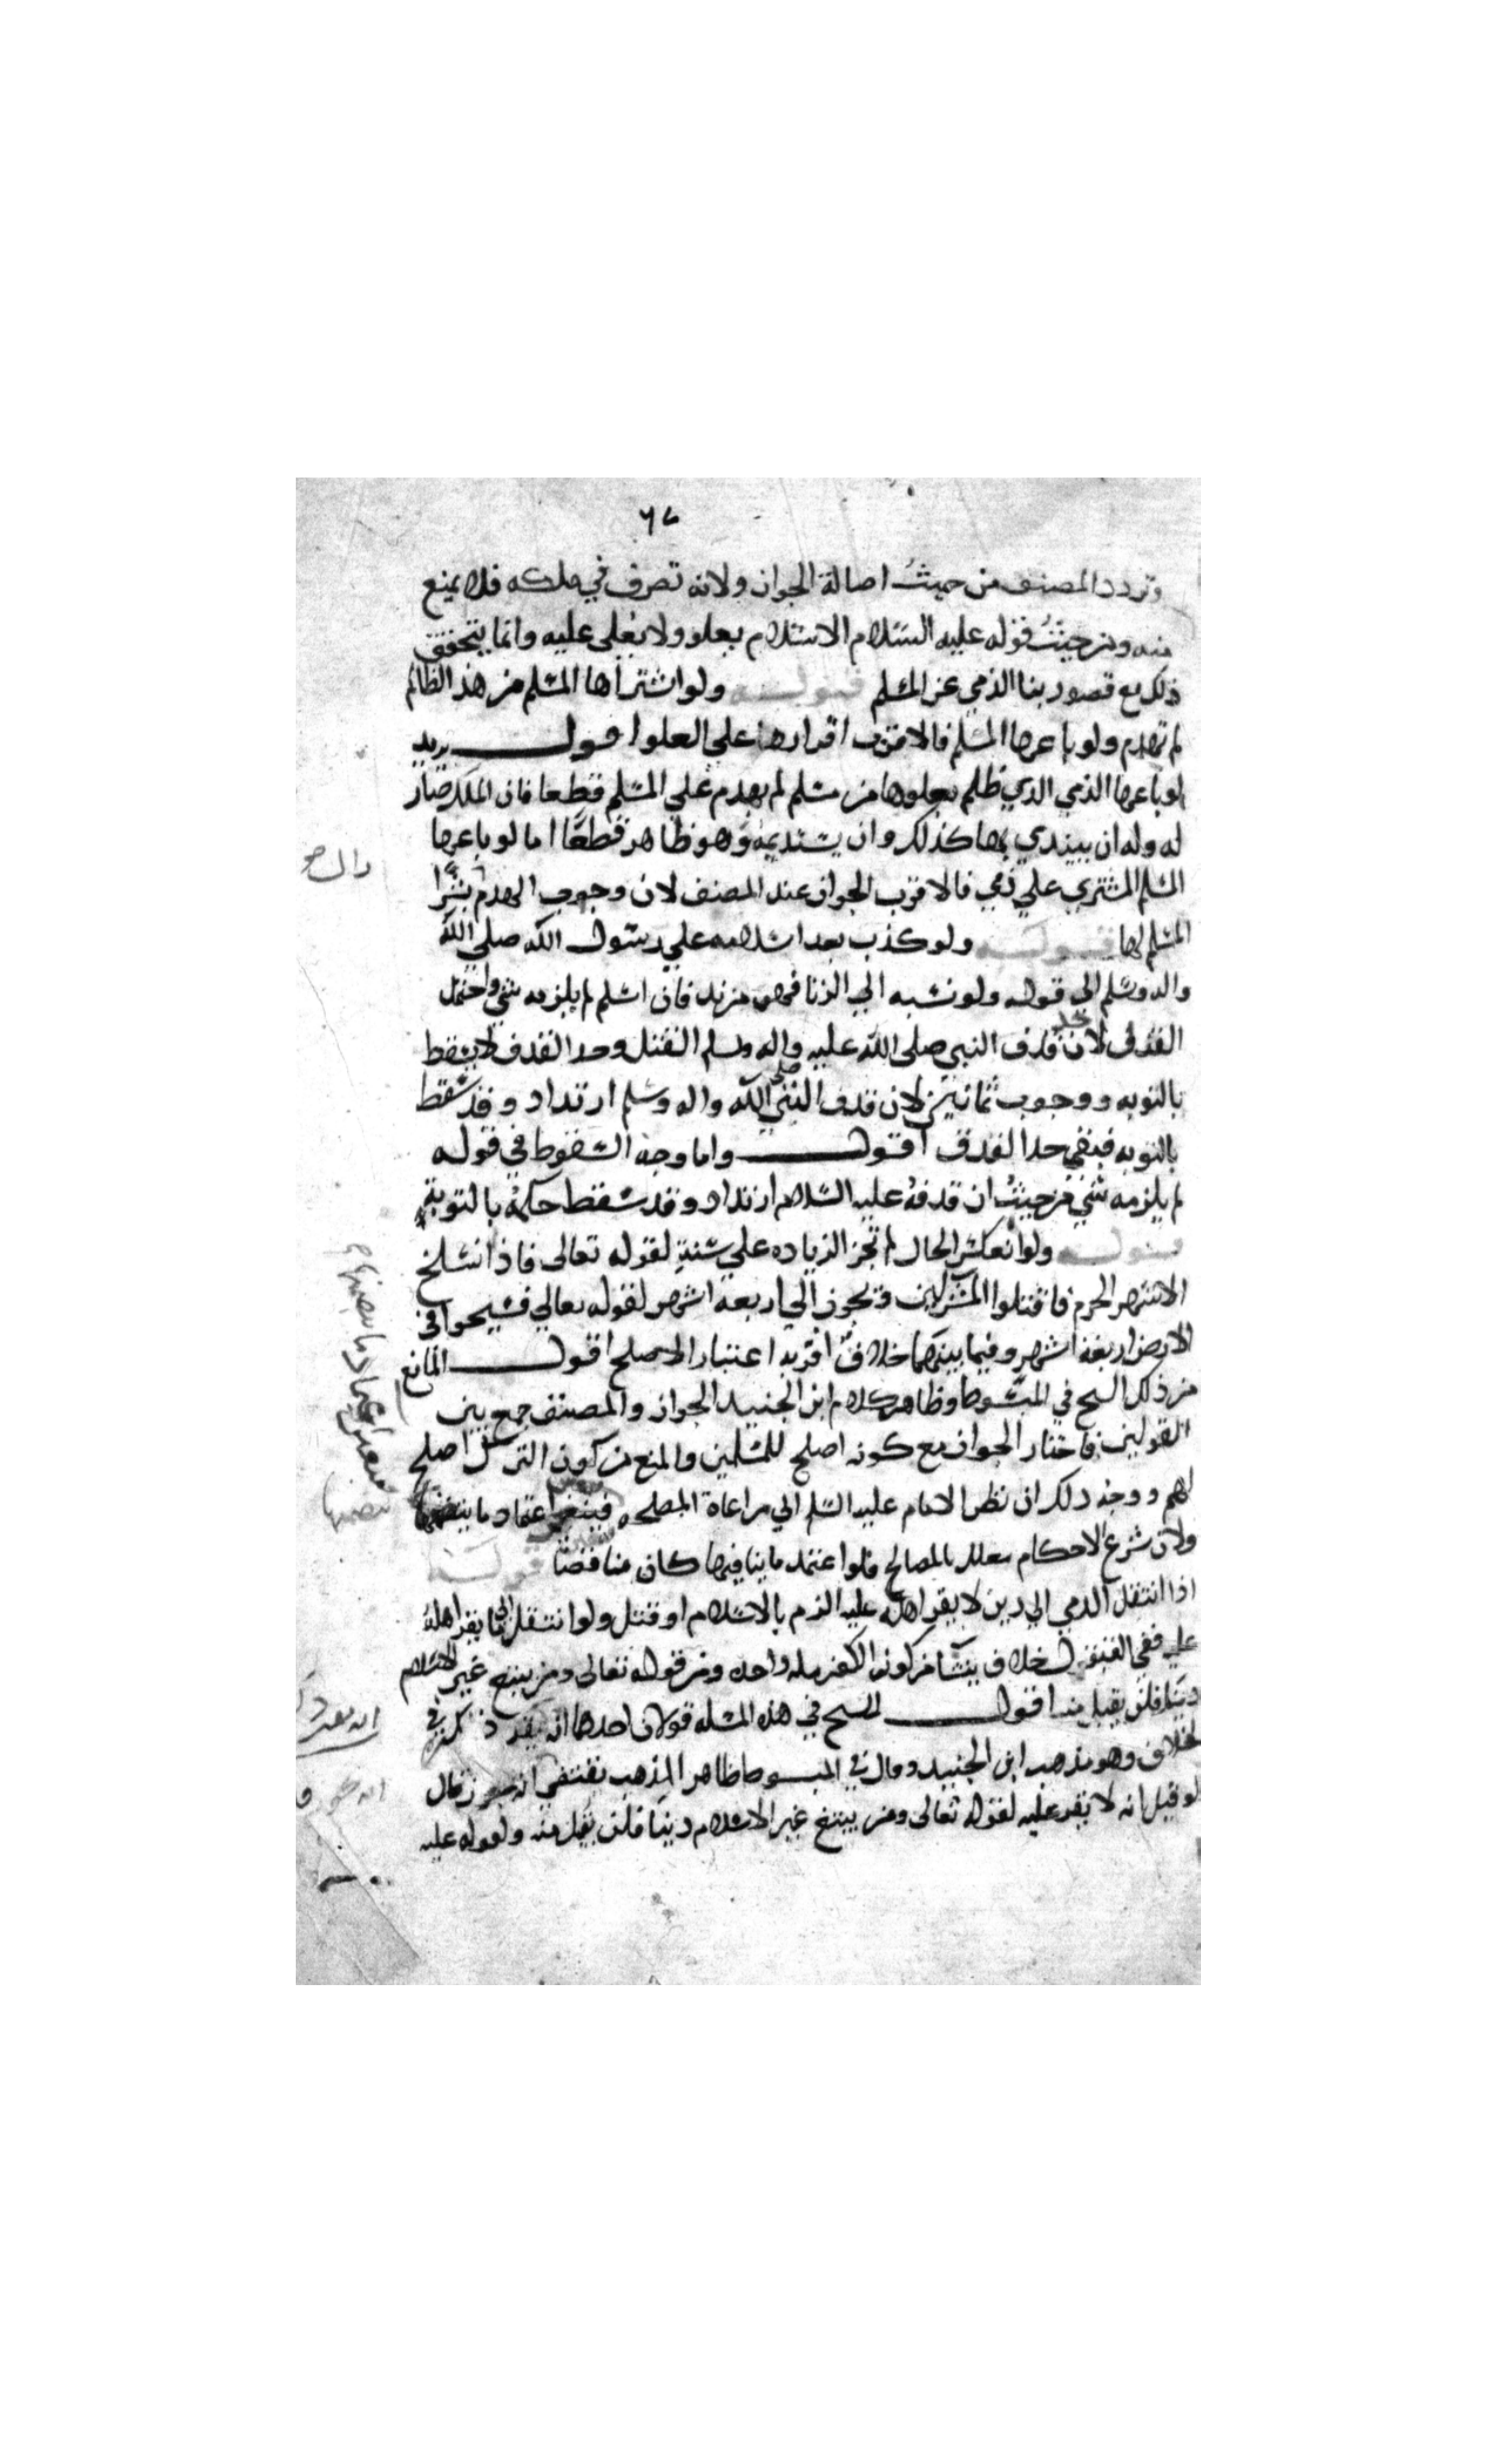 ٦٧
وتردد المصنف من حيث اصالة الجواز ولانه تصرف في ملكه فلا يمنع
منه ومن حيث قوله عليه السلام الاسلام يعلو ولا يعلى عليه وانما يتحقق
ذلك مع قصور بنا الذمي عن المسلم قوله ولو اشتراها المسلم من هذ الظالم
لم تهدم ولو باعها المسلم فالاقرب اقرارها علي العلو اقول يريد
لو باعها الذمي الذي ظلم بعلوها من مسلم لم يهدم علي المسلم قطعا فان الملك صار
له وله ان يبتدي بها كذلك وان يستديمه وهو ظاهر قطعا اما لو باعها
المسلم المشتري علي ذمي فالاقرب الجواز عند المصنف لان وجوب الهدم بشرا
المسلم لها قوله ولو كذب بعد اسلامه علي رسول الله صلي الله
واله وسلم الي قوله ولو نسبه الي الزنا فهو مرتد فان اسلم لم يلزمه شي واحتمل
القتل لان حد قذف النبي صلي الله عليه واله وسلم القتل وحد القذف لا يسقط
بالتوبه ووجوب ثمانين لان قذف النبي صلى الله واله وسلم ارتداد وقد سقط
بالتوبه فبقي حد القذف اقول واما وجه السقوط في قوله
لم يلزمه شي من حيث ان قذفه عليه السلام ارتداد وقد سقط حكمه بالتوبة
قوله ولو انعكس الحال لم تجز الزياده علي سنة لقوله تعالى فاذا انسلخ
الاشهر الحرم فاقتلوا المشركين وتجوز الي اربعه اشهر لقوله تعالي فسيحوا في
الارض اربعة اشهر وفيما بينهما خلاف اقربه اعتبار الاصلح اقول المانع
من ذلك الشيخ في المبسوط وظاهر كلام ابن الجنيد الجواز والمصنف جمع بين
القولين فاختار الجواز مع كونه اصلح للمسلمين والمنع من كون الترك اصلح
لهم ووجه ذلك ان نظر الامام عليه السلم الي مراعاة المصلحه فيتعين اعتماد ما
ولان شرع الاحكام معلل بالمصالح فلو اعتمد ما ينافيها كان مناقضا قوله
اذا انتقل الذمي الي دين لا يقر اهله عليه الزم بالاسلام او قتل ولو انتقل الى ما يقر اهله
عليه ففي القبول خلاف ينشا من كون الكفر مله واحده ومن قوله تعالى ومن يبتغ غير الاسلام
دينا فلن يقبل منه اقول للشيخ في هذه المسله قولان احدهما انه يقر ذكره في
الخلاف وهو مذهب ابن الجنيد وقال في المبسوط ظاهر المذهب يقتضي انه يجوز قال
لو قيل انه لا يقر عليه لقوله تعالى ومن يبتغ غير الاسلام دينا فلن يقبل منه ولقوله عليه